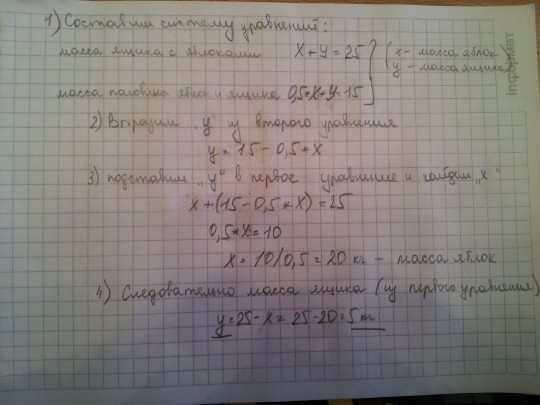 1) Составим систему уравнений:
масса ящика с яблоками x+y=25 (x- масса яблок
y - масса ящика)
масса половины яблок и ящика 0,5*x+y=15
2) Выразим "y" из второго уравнения
y=15-0,5*x
3) подставим "y" в первое уравнение и найдем "x"
x+(15-0,5*x)=25
0,5*x=10
x=10/0,5=20 кг - масса яблок
4) Следовательно масса ящика (из первого уравнения)
y=25-x=25-20=5
Информат